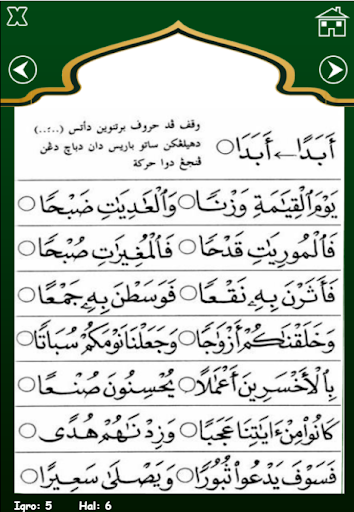 X
وقف قد حروف برتنوين دأتس (..ً..)
أَبَدًا ← أَبَدَا
دهيلڠكن ساتو باريس دان دباچ دڠن
ڤنجڠ دوا حركة
يَوْمَ الْقِيَٰمَةِ وَزْنَا وَالْعَٰدِيَٰتِ ضَبْحًا
فَالْمُورِيَٰتِ قَدْحًا فَالْمُغِيرَٰتِ صُبْحًا
فَأَثَرْنَ بِهِۦ نَقْعًا فَوَسَطْنَ بِهِۦ جَمْعًا
وَخَلَقْنَٰكُمْ أَزْوَٰجًا وَجَعَلْنَا نَوْمَكُمْ سُبَاتًا
بِالْأَخْسَرِينَ أَعْمَٰلًا يُحْسِنُونَ صُنْعًا
كَانُوا۟ مِنْ ءَايَٰتِنَا عَجَبًا وَزِدْنَٰهُمْ هُدًى
فَسَوْفَ يَدْعُوا۟ ثُبُورًا وَيَصْلَىٰ سَعِيرًا
Iqro: 5 Hal: 6